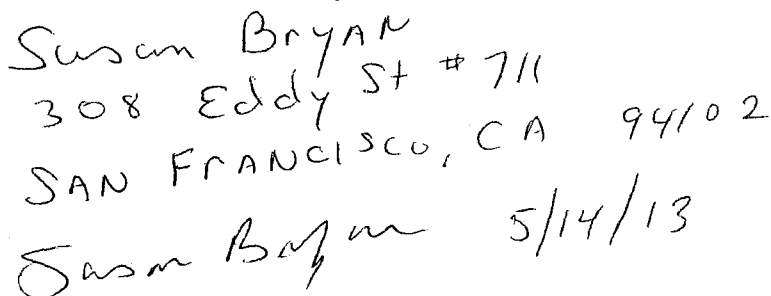 Susan Bryan
308 Eddy St # 711
SAN FrANCISCO, CA 94102
Susan Bryan 5/14/13